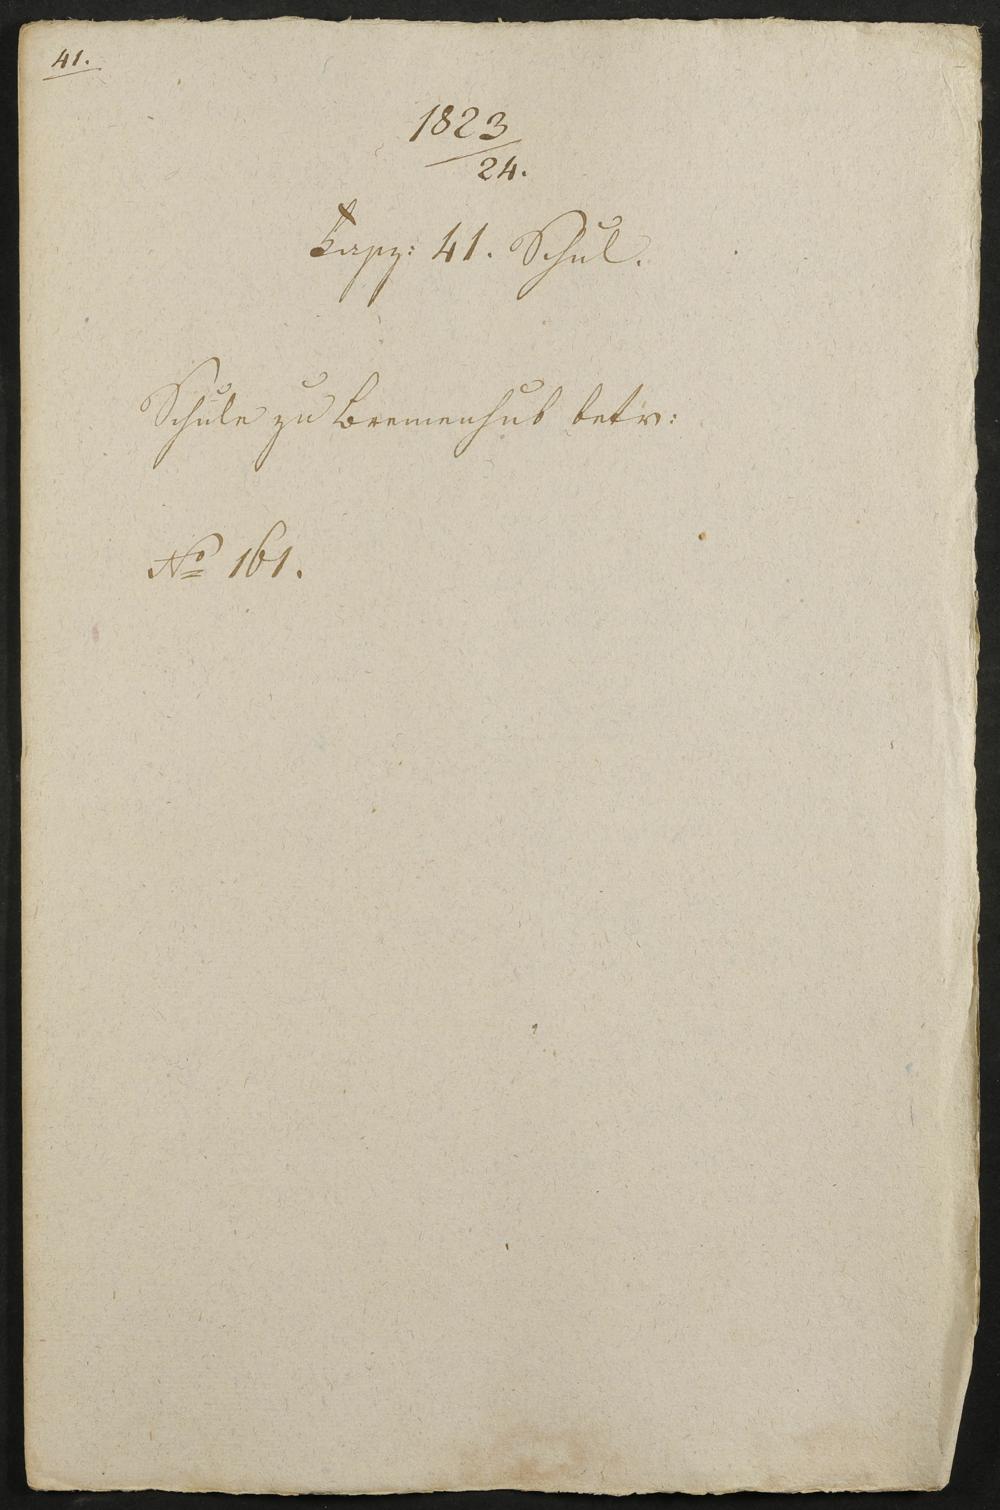 41.
1823
24.
Fasz: 41. Schul.
Schule zu Bremenhub betr:
No 161.